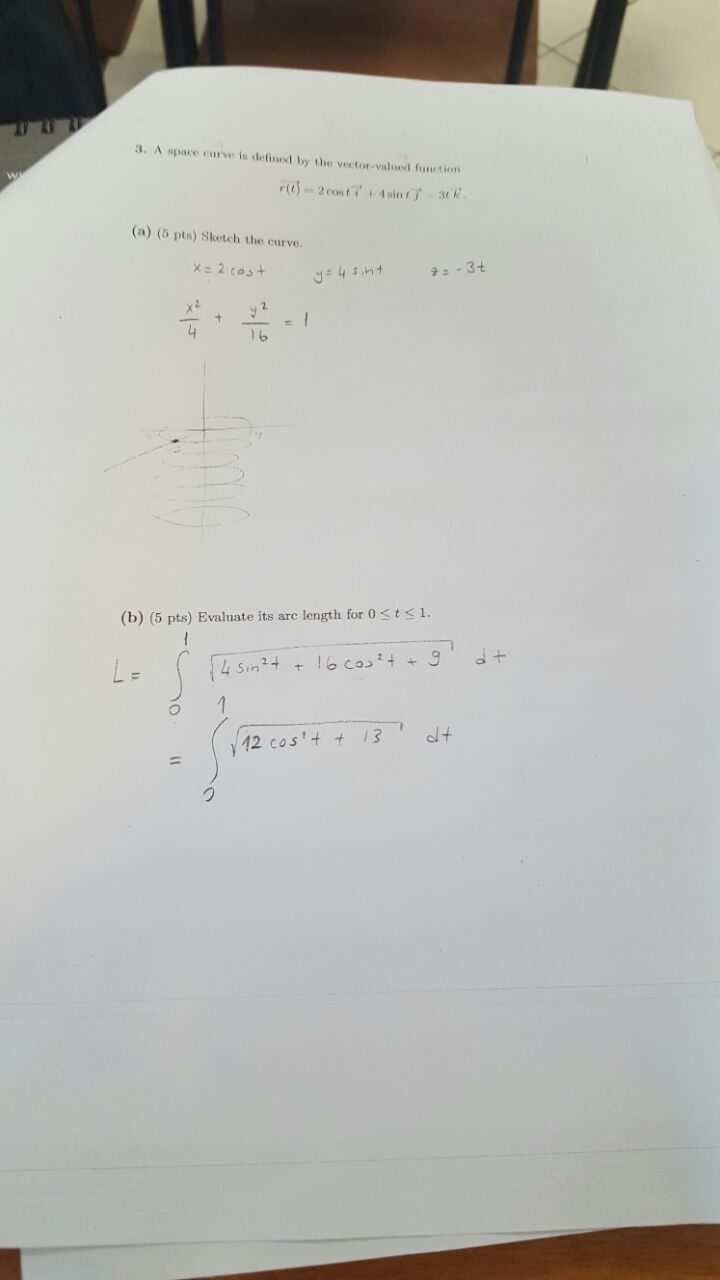 3. A space curve is defined by the vector-valued function
r(t) = 2 cos t i + 4 sin t j − 3t k.
(a) (5 pts) Sketch the curve.
x = 2 cos t y = 4 sin t z = -3t
x²/4 + y²/16 = 1
(b) (5 pts) Evaluate its arc length for 0 ≤ t ≤ 1.
L = ∫₀¹ √(4 sin²t + 16 cos²t + 9) dt
= ∫₀¹ √(12 cos²t + 13) dt